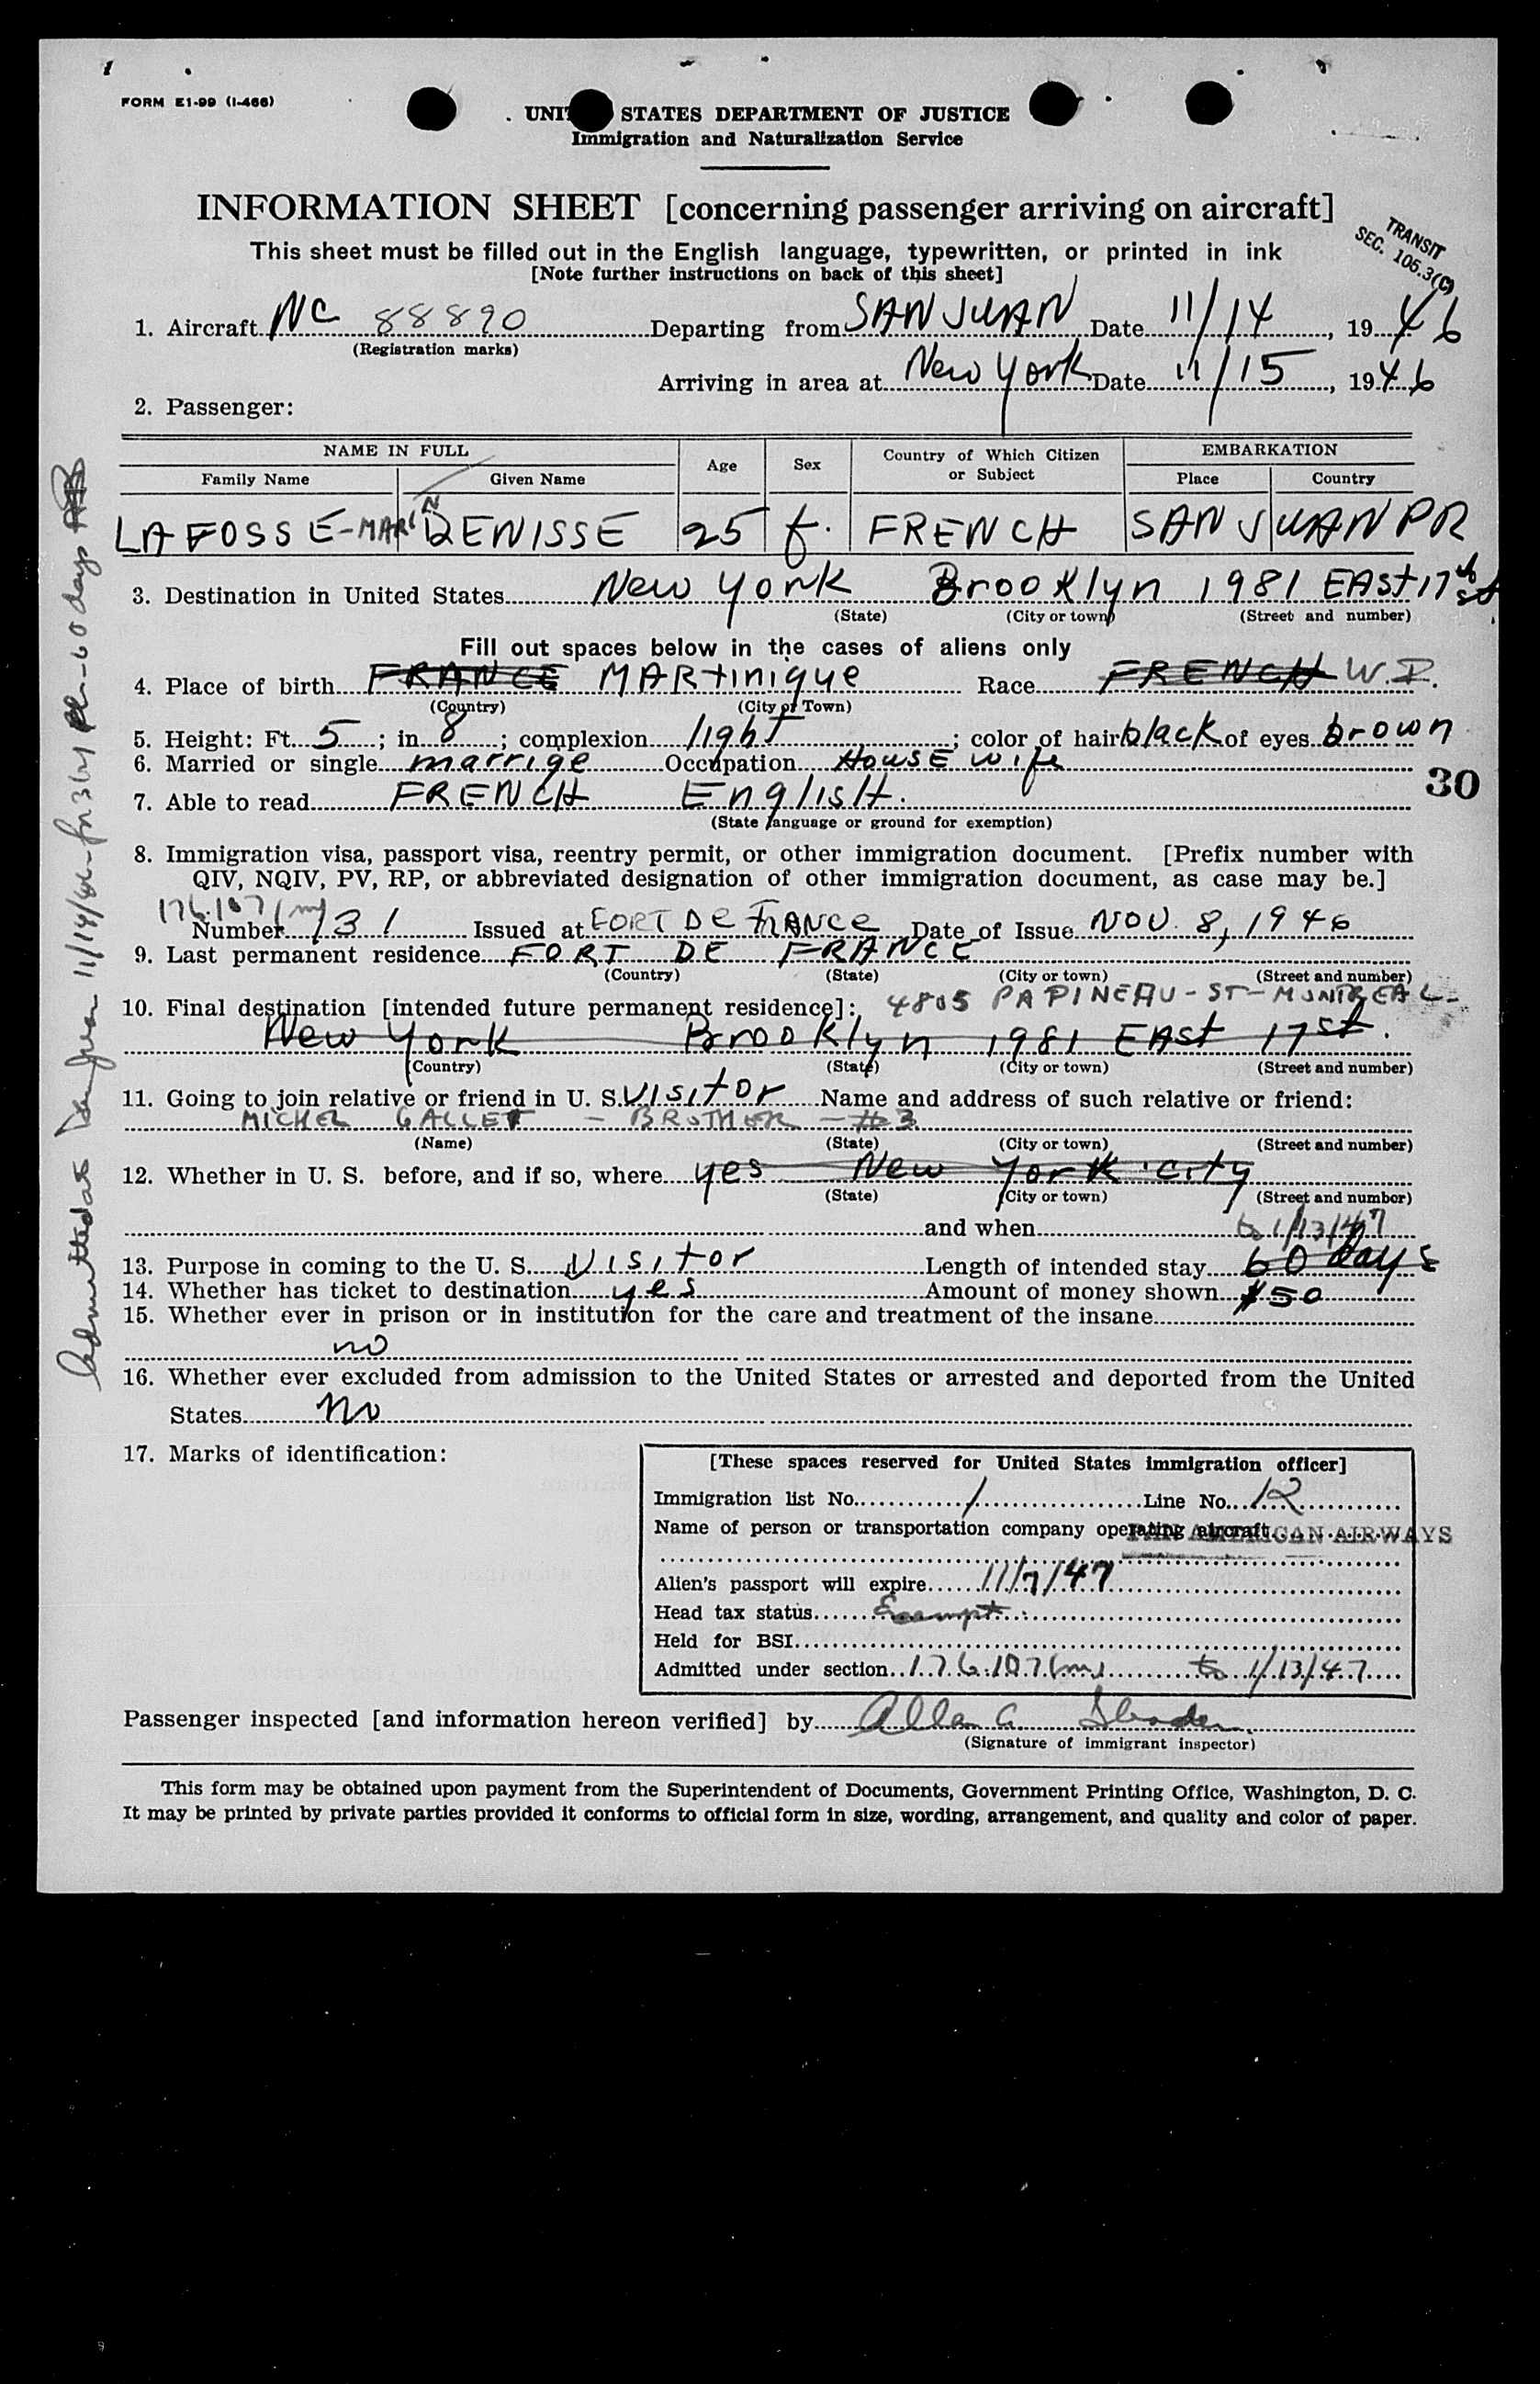 FORM E1-99 (I-466)
UNI STATES DEPARTMENT OF JUSTICE
Immigration and Naturalization Service
INFORMATION SHEET [concerning passenger arriving on aircraft]
TRANSIT
SEC. 105.3(C)
This sheet must be filled out in the English language, typewritten, or printed in ink
[Note further instructions on back of this sheet]
1. Aircraft NC 88890 Departing from SAN JUAN Date 11/14, 1946
(Registration marks)
Arriving in area at New York Date 11/15, 1946
2. Passenger:
NAME IN FULL Age Sex Country of Which Citizen or Subject EMBARKATION
Family Name Given Name Place Country
LAFOSSE-MARIN DENISSE 25 f. FRENCH SAN JUAN PR
3. Destination in United States New York Brooklyn 1981 EAST 17th st
(State) (City or town) (Street and number)
Fill out spaces below in the cases of aliens only
4. Place of birth FRANCE MARTINIQUE Race FRENCH W.I.
(Country) (City or Town)
5. Height: Ft. 5; in. 8; complexion light; color of hair black of eyes brown
6. Married or single marrige Occupation HOUSE wife
30
7. Able to read FRENCH ENGLISH.
(State language or ground for exemption)
8. Immigration visa, passport visa, reentry permit, or other immigration document. [Prefix number with
QIV, NQIV, PV, RP, or abbreviated designation of other immigration document, as case may be.]
176.107(m)
Number 131 Issued at FORT DE FRANCE Date of Issue NOV. 8, 1946
9. Last permanent residence FORT DE FRANCE
(Country) (State) (City or town) (Street and number)
10. Final destination [intended future permanent residence]: 4805 PAPINEAU-ST-MONTREAL-
New York Brooklyn 1981 EAST 17 st.
(Country) (State) (City or town) (Street and number)
11. Going to join relative or friend in U. S. VISITOR Name and address of such relative or friend:
MICHEL GALLET - BROTHER - #3
(Name) (State) (City or town) (Street and number)
12. Whether in U. S. before, and if so, where yes New York city
(State) (City or town) (Street and number)
and when to 1/13/47
13. Purpose in coming to the U. S. VISITOR Length of intended stay 60 days
14. Whether has ticket to destination yes Amount of money shown $50
15. Whether ever in prison or in institution for the care and treatment of the insane
no
16. Whether ever excluded from admission to the United States or arrested and deported from the United
States no
17. Marks of identification:
[These spaces reserved for United States immigration officer]
Immigration list No. 1 Line No. 12
Name of person or transportation company operating aircraft PAN AMERICAN AIRWAYS
Alien's passport will expire 11/7/47
Head tax status Exempt
Held for BSI
Admitted under section 176.107(m) to 1/13/47
Passenger inspected [and information hereon verified] by Allan G.
(Signature of immigrant inspector)
This form may be obtained upon payment from the Superintendent of Documents, Government Printing Office, Washington, D. C.
It may be printed by private parties provided it conforms to official form in size, wording, arrangement, and quality and color of paper.
Admitted at San Juan 11/14/46 60 days